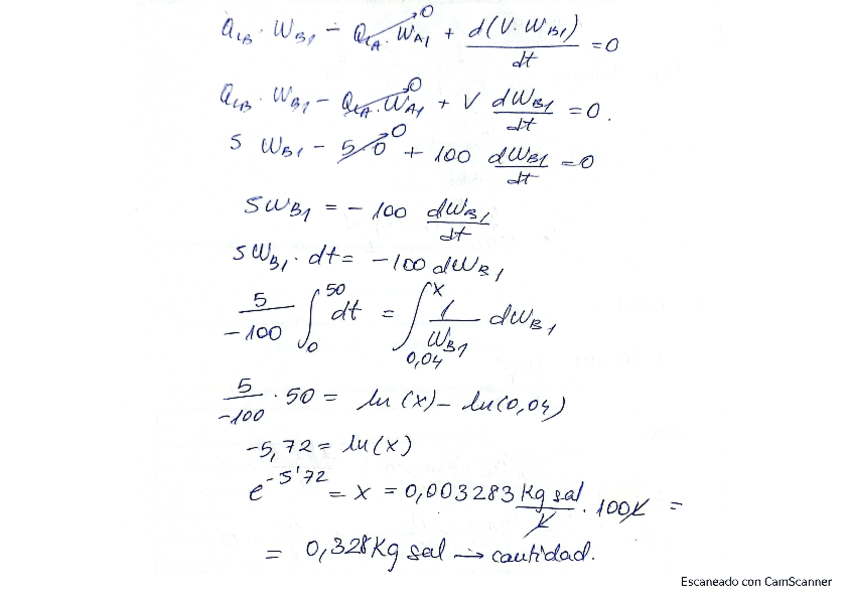 Q_{LB} · W_{B1} - Q_{LA} · W_{A1} 0 + d(V · W_{B1})/dt = 0
Q_{LB} · W_{B1} - Q_{LA} · W_{A1} 0 + V dW_{B1}/dt = 0.
5 W_{B1} - 5·0 0 + 100 dW_{B1}/dt = 0
5W_{B1} = - 100 dW_{B1}/dt
5W_{B1} · dt = -100 dW_{B1}
5/-100 ∫_0^50 dt = ∫_{0,04}^x 1/W_{B1} dW_{B1}
5/-100 · 50 = ln(x) - ln(0,04)
-5,72 = ln(x)
e^{-5'72} = x = 0,003283 Kg sal/L · 100L =
= 0,328 Kg sal → cantidad.
Escaneado con CamScanner